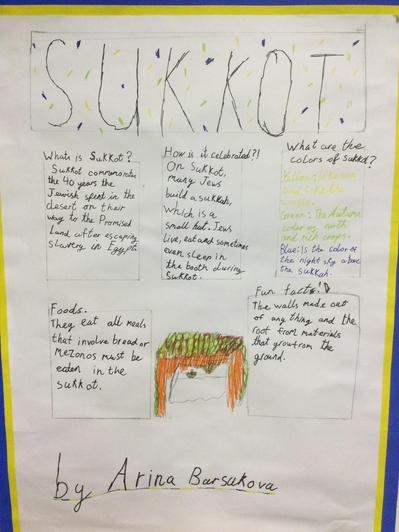 SUKKOT
What is Sukkot?
Sukkot commemorates
the 40 years the
Jewish spent in the
desert on their
way to the Promised
Land after escaping
slavery in Egypt.
How is it celebrated?!
On Sukkot,
many Jews
build a sukkah,
which is a
small hut. Jews
live, eat and sometimes
even sleep in
the booth during
Sukkot.
What are the
colors of sukkot?
Yellow:
and
Green: The Autumn
color
and rich crops.
Blue: Is the color of
the night sky above
the sukkah.
Foods.
They eat all meals
that involve bread or
Mezonos must be
eaten in the
sukkot.
Fun facts!
The walls made out
of any thing and the
roof from materials
that grow from the
ground.
by Arina Barsukova